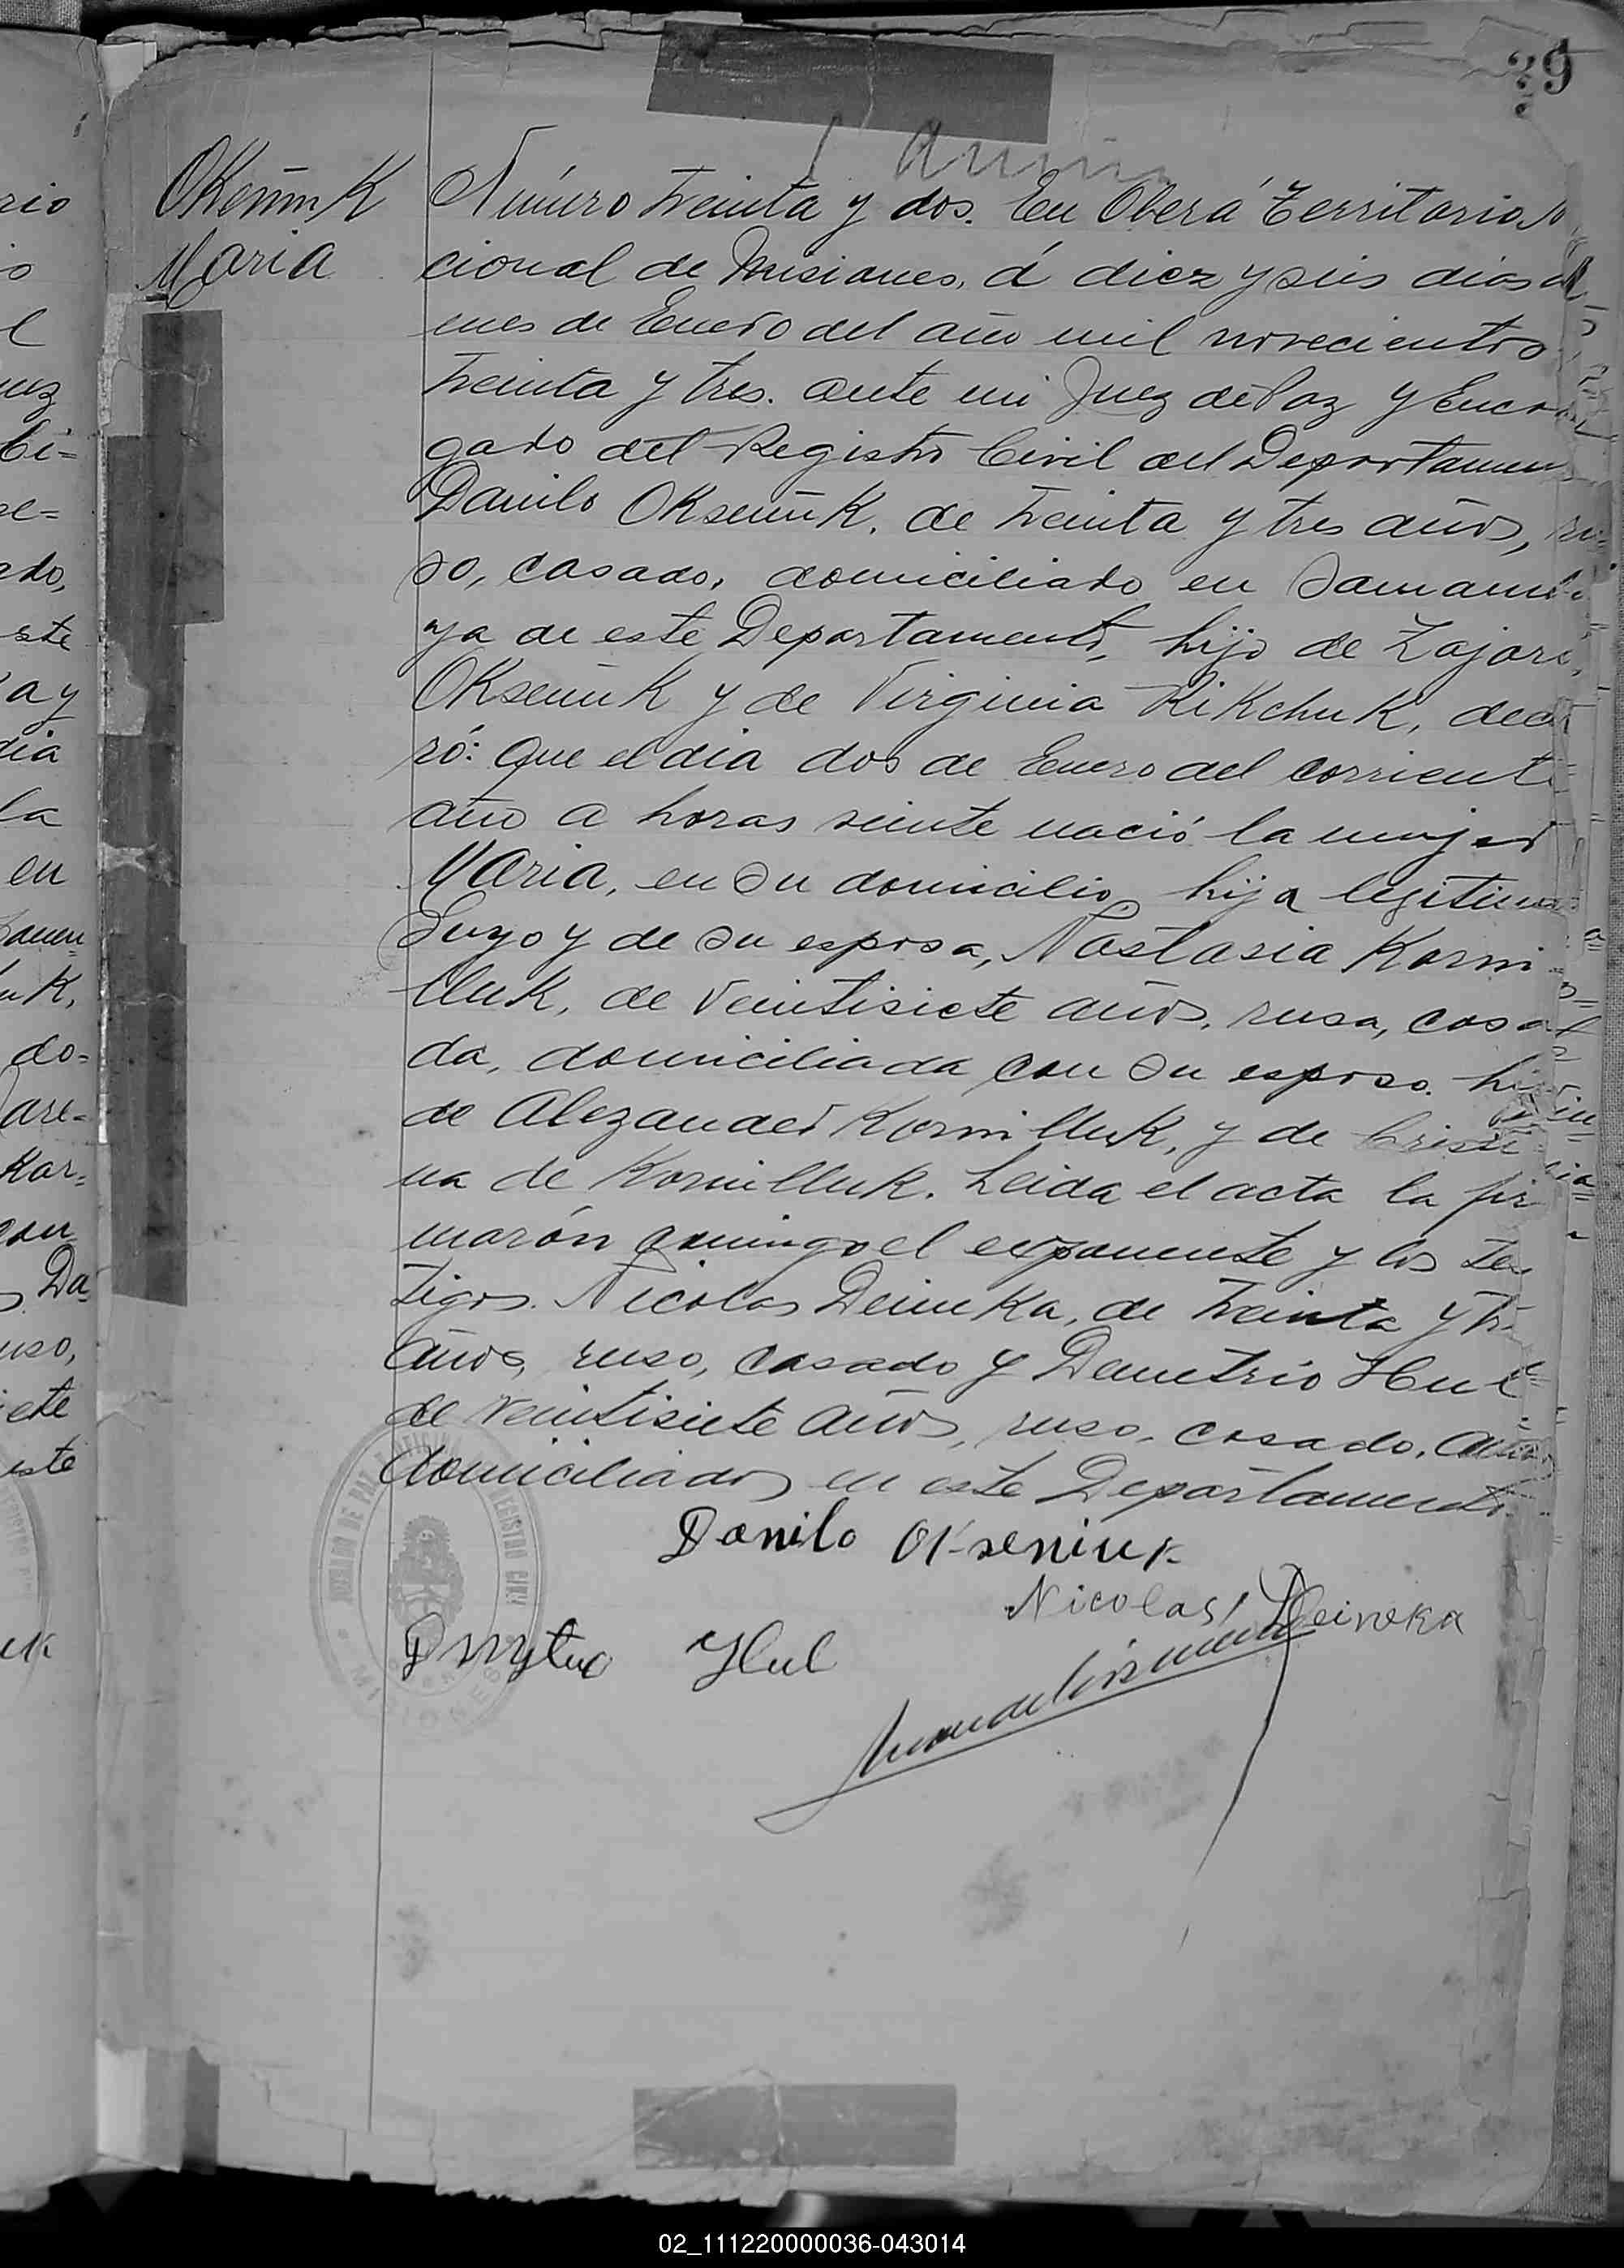 39
Okeniuk
Maria
Número treinta y dos. En Oberá Territorio Na
cional de Misiones, á diez y seis dias del
mes de Enero del año mil novecientos
treinta y tres. ante mi Juez de Paz y Encar
gado del Registro Civil del Departamen
Danilo Okseniuk, de treinta y tres años, ru=
so, casado, domiciliado en Samam
ya de este Departamento, hijo de Zajari
Okseniuk y de Virginia Kikchuk, decla
ró: Que el dia dos de Enero del corriente
año a horas siete nació la mujer
Maria, en su domicilio, hija legitima
Suyo y de su esposa, Nastasia Korni
lluk, de veintisiete años, rusa, casa
da, domiciliada con su esposo. hija
de Alezander Kornilluk, y de Cristi
na de Kornilluk. Leida el acta la fir
marón conmigo el exponente y los tes
tigos. Nicolas Deineka, de treinta y tres
años, ruso, casado y Demetrio Hul
de veintisiete años, ruso, casado, ambos
domiciliados en este Departamento.
Danilo Okseniuk
Nicolas Deineka
Dmytro Hul
JUZGADO DE PAZ Y OFICINA DEL REGISTRO CIVIL
MISIONES
rio
o
l
uez
Ci=
e=
ado,
ste
a y
dia
la
en
amen
uk,
do=
are=
Kor=
con
Da=
uso,
iete
este
uk
02_111220000036-043014